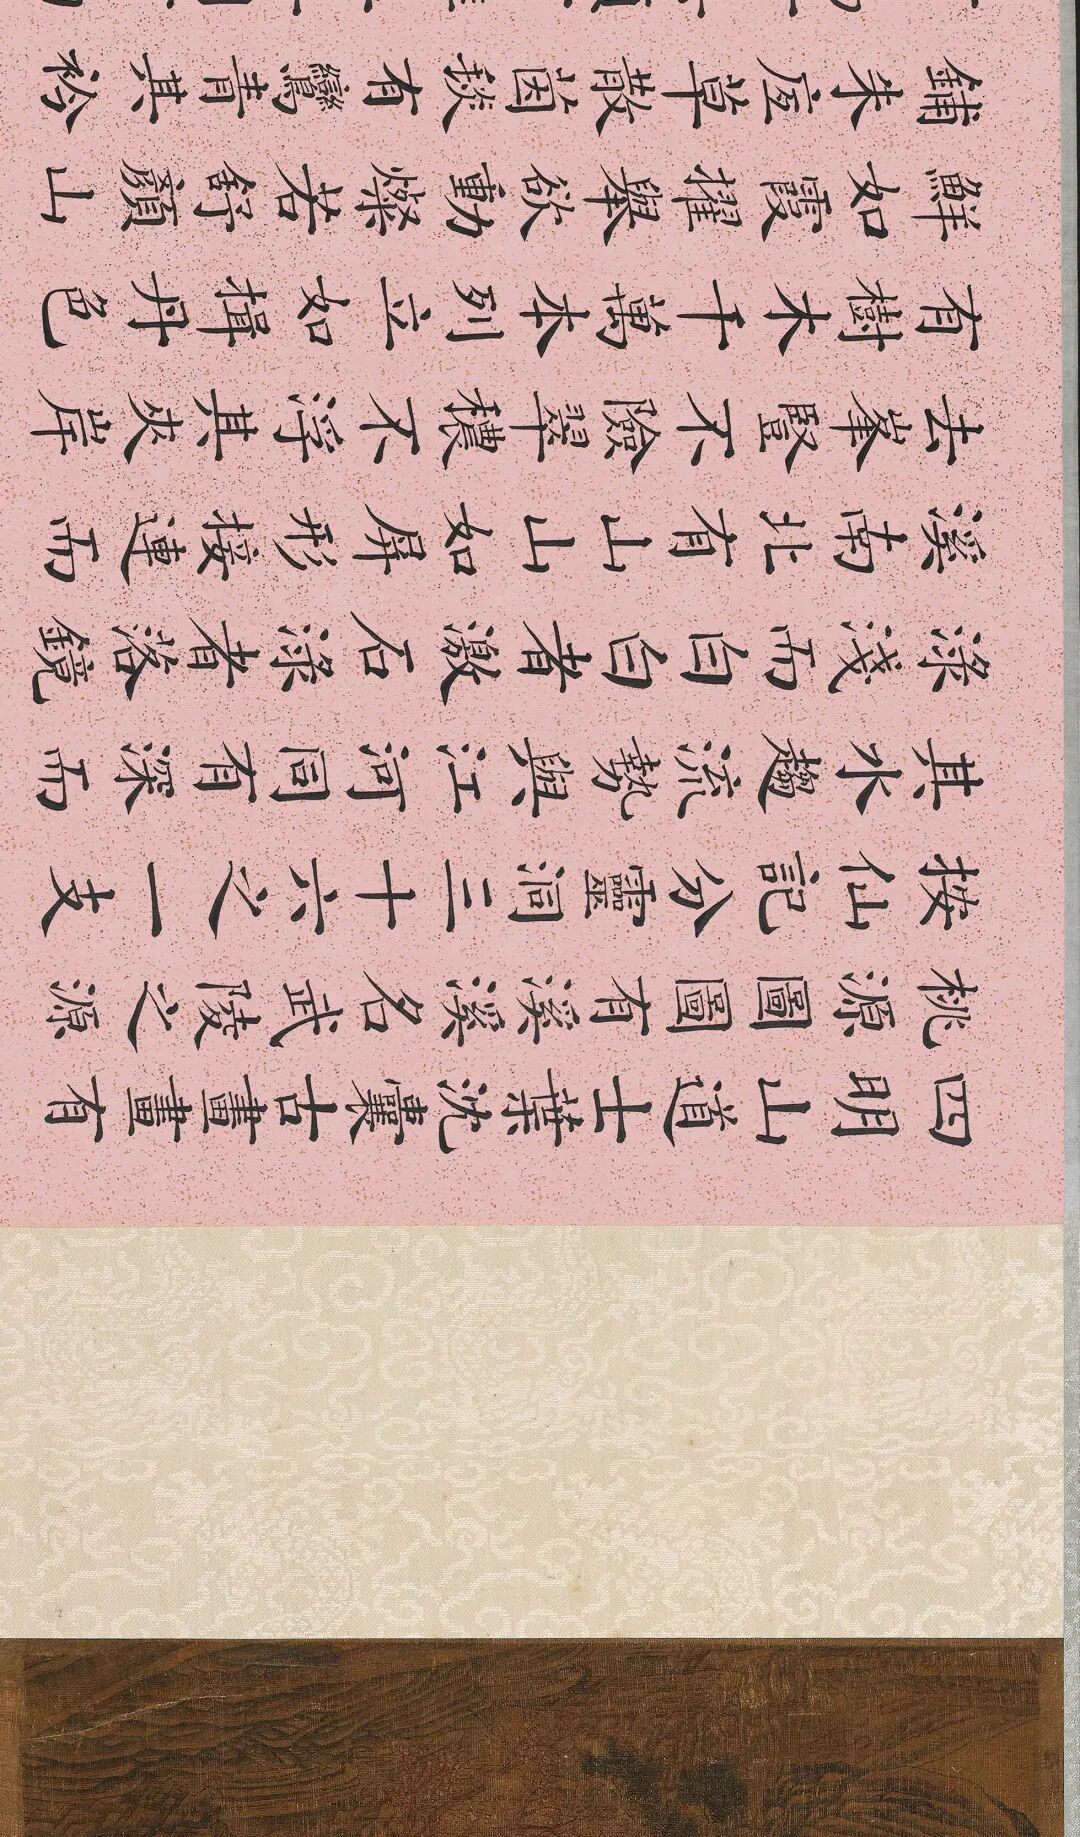 四明山道士葉沈囊古畫畫有
桃源圖圖有溪溪名武陵之源
按仙記分靈洞三十六之一支
其水趨流勢與江河同有深而
淥淺而白白者激石淥者落鏡
溪南北有山山如屏形接連而
去峯豎不險翠穠不浮其夾岸
有樹木千萬本列立如揖丹色
鮮如霞擢舉欲動燦若舒顏山
鋪朱底草散茵毯有鸞青其衿